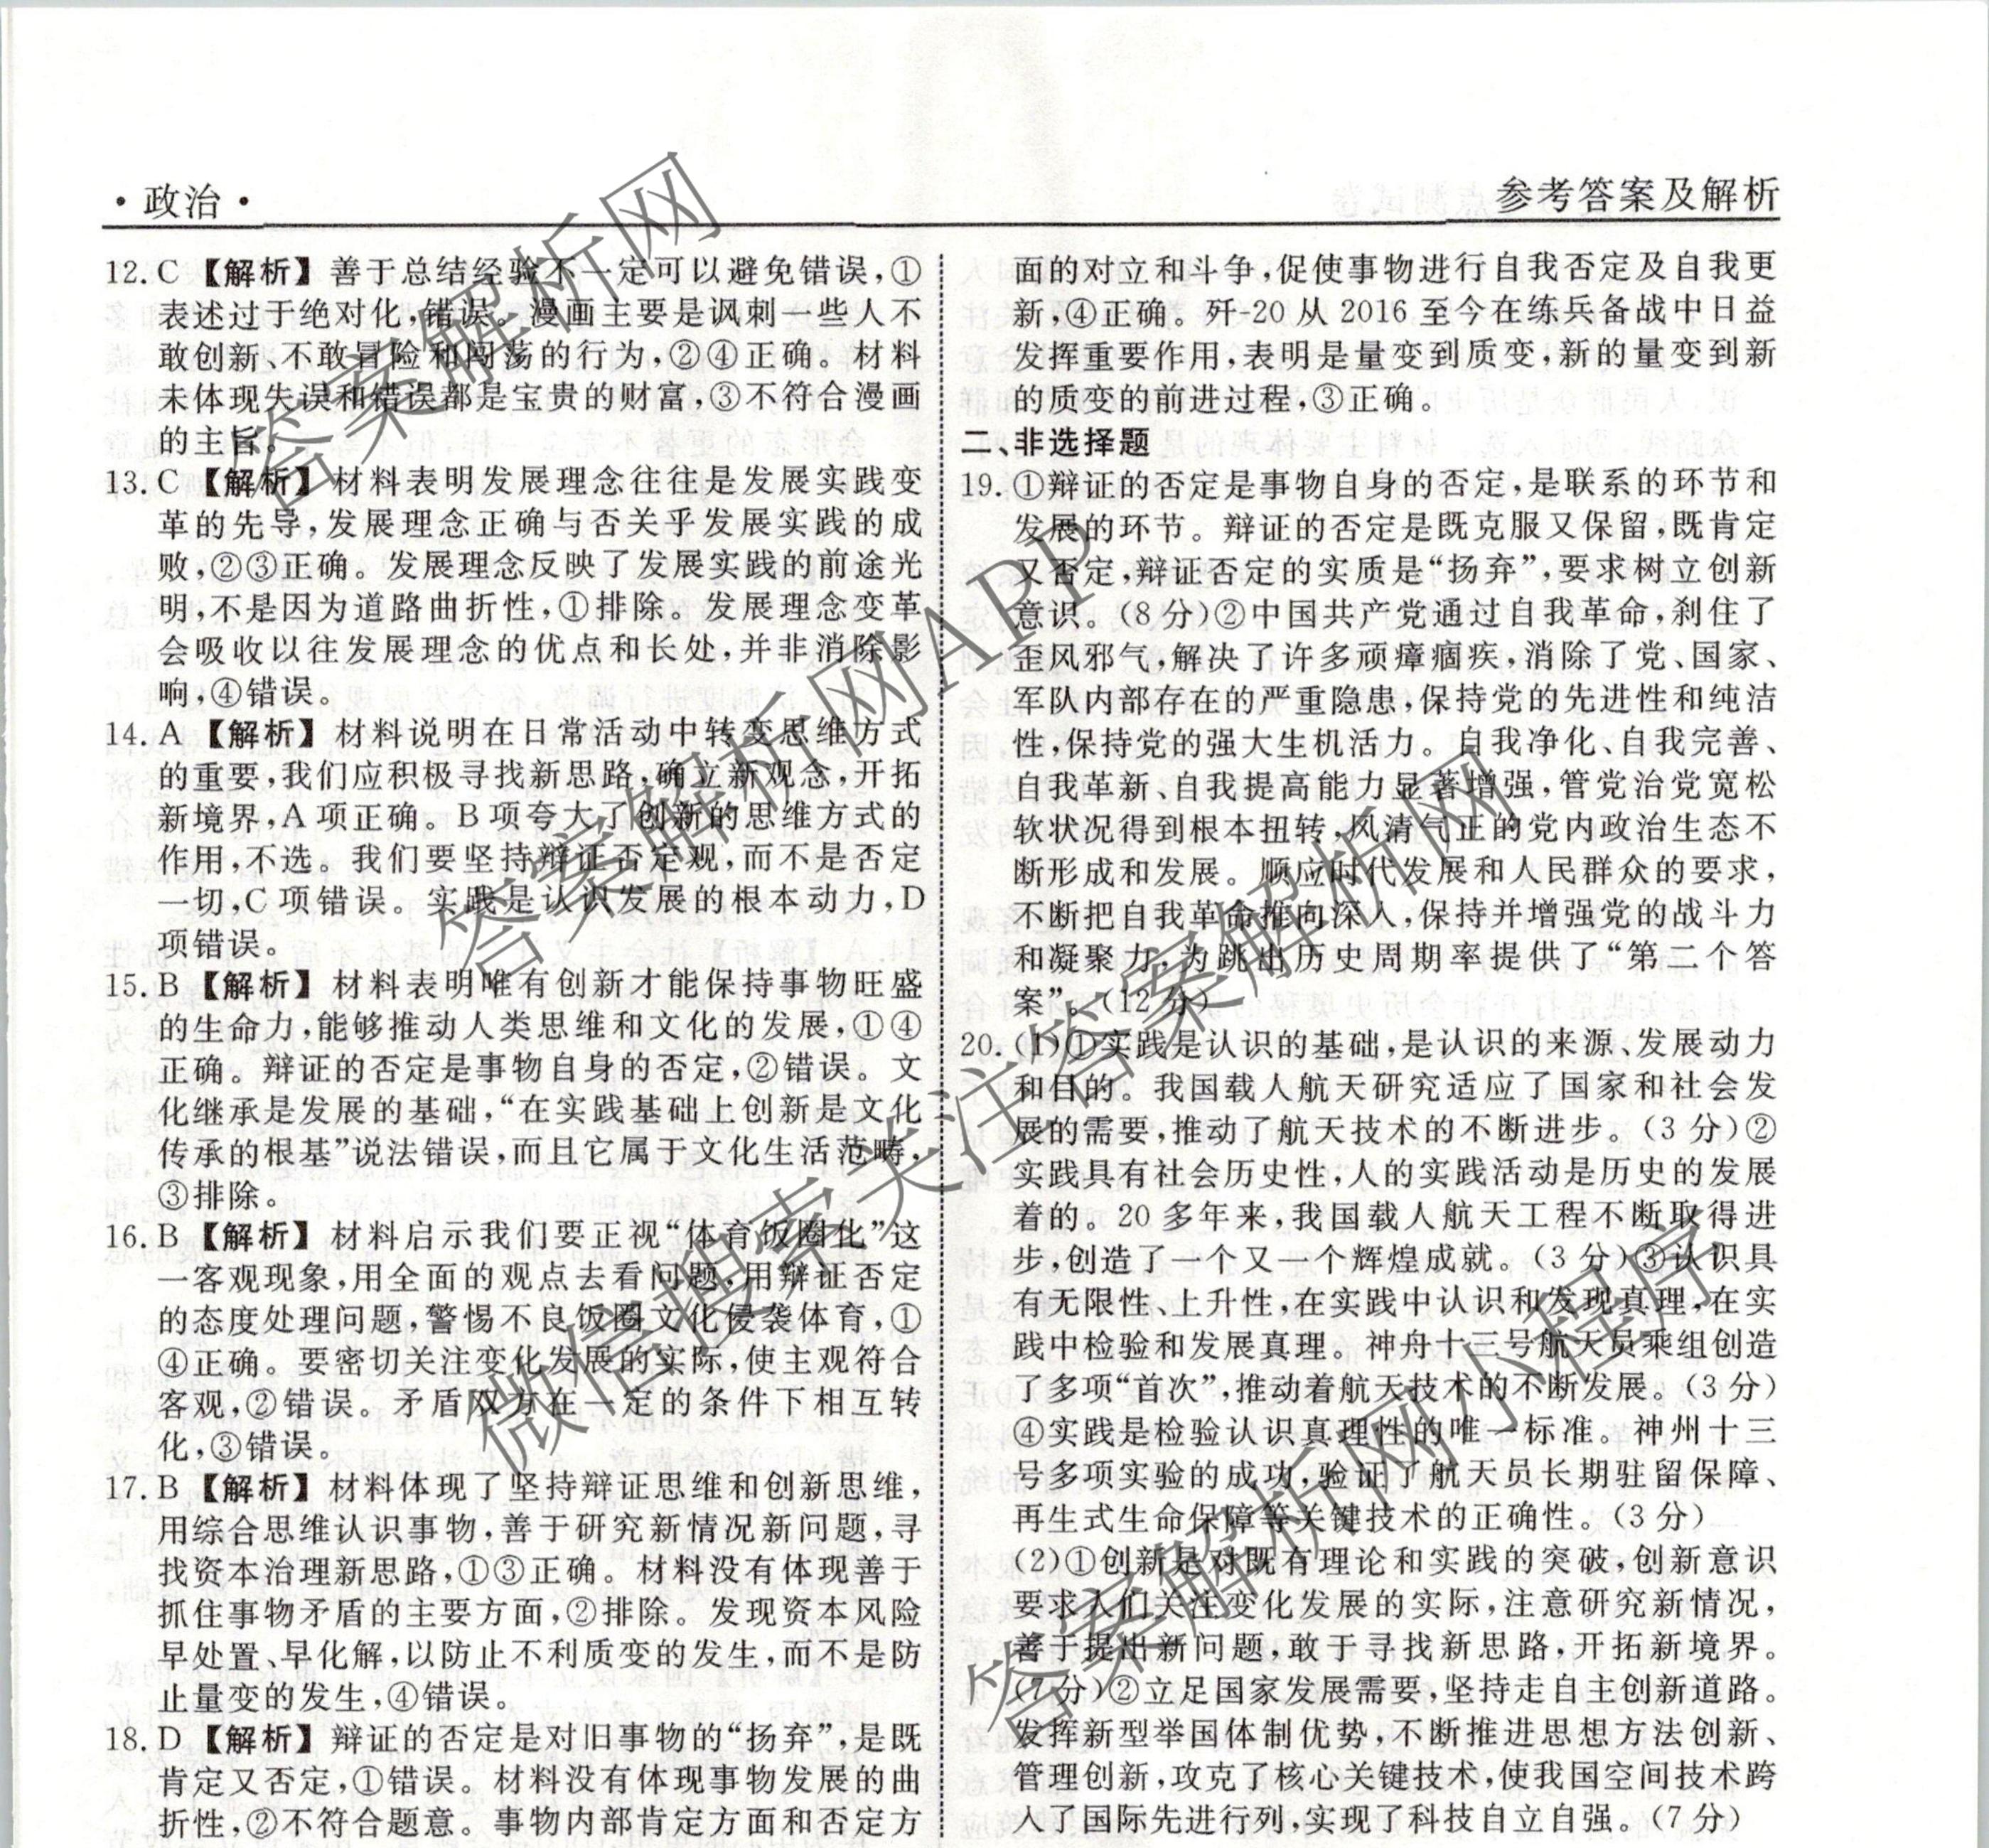 ·政治·
参考答案及解析
12.C【解析】善于总结经验不一定可以避免错误,①
表述过于绝对化,错误。漫画主要是讽刺一些人不
敢创新、不敢冒险和闯荡的行为,②④正确。材料
未体现失误和错误都是宝贵的财富,③不符合漫画
的主旨。
13.C【解析】材料表明发展理念往往是发展实践变
革的先导,发展理念正确与否关乎发展实践的成
败,②③正确。发展理念反映了发展实践的前途光
明,不是因为道路曲折性,①排除。发展理念变革
会吸收以往发展理念的优点和长处,并非消除影
响,④错误。
14.A【解析】材料说明在日常活动中转变思维方式
的重要,我们应积极寻找新思路,确立新观念,开拓
新境界,A项正确。B项夸大了创新的思维方式的
作用,不选。我们要坚持辩证否定观,而不是否定
一切,C项错误。实践是认识发展的根本动力,D
项错误。
15.B【解析】材料表明唯有创新才能保持事物旺盛
的生命力,能够推动人类思维和文化的发展,①④
正确。辩证的否定是事物自身的否定,②错误。文
化继承是发展的基础,“在实践基础上创新是文化
传承的根基”说法错误,而且它属于文化生活范畴,
③排除。
16.B【解析】材料启示我们要正视“体育饭圈化”这
一客观现象,用全面的观点去看问题,用辩证否定
的态度处理问题,警惕不良饭圈文化侵袭体育,①
④正确。要密切关注变化发展的实际,使主观符合
客观,②错误。矛盾双方在一定的条件下相互转
化,③错误。
17.B【解析】材料体现了坚持辩证思维和创新思维,
用综合思维认识事物,善于研究新情况新问题,寻
找资本治理新思路,①③正确。材料没有体现善于
抓住事物矛盾的主要方面,②排除。发现资本风险
早处置、早化解,以防止不利质变的发生,而不是防
止量变的发生,④错误。
18.D【解析】辩证的否定是对旧事物的“扬弃”,是既
肯定又否定,①错误。材料没有体现事物发展的曲
折性,②不符合题意。事物内部肯定方面和否定方
面的对立和斗争,促使事物进行自我否定及自我更
新,④正确。歼-20从2016至今在练兵备战中日益
发挥重要作用,表明是量变到质变,新的量变到新
的质变的前进过程,③正确。
二、非选择题
19.①辩证的否定是事物自身的否定,是联系的环节和
发展的环节。辩证的否定是既克服又保留,既肯定
又否定,辩证否定的实质是“扬弃”,要求树立创新
意识。(8分)②中国共产党通过自我革命,刹住了
歪风邪气,解决了许多顽瘴痼疾,消除了党、国家、
军队内部存在的严重隐患,保持党的先进性和纯洁
性,保持党的强大生机活力。自我净化、自我完善、
自我革新、自我提高能力显著增强,管党治党宽松
软状况得到根本扭转,风清气正的党内政治生态不
断形成和发展。顺应时代发展和人民群众的要求,
不断把自我革命推向深入,保持并增强党的战斗力
和凝聚力,为跳出历史周期率提供了“第二个答
案”。(12分)
20.(1)①实践是认识的基础,是认识的来源、发展动力
和目的。我国载人航天研究适应了国家和社会发
展的需要,推动了航天技术的不断进步。(3分)②
实践具有社会历史性,人的实践活动是历史的发展
着的。20多年来,我国载人航天工程不断取得进
步,创造了一个又一个辉煌成就。(3分)③认识具
有无限性、上升性,在实践中认识和发现真理,在实
践中检验和发展真理。神舟十三号航天员乘组创造
了多项“首次”,推动着航天技术的不断发展。(3分)
④实践是检验认识真理性的唯一标准。神州十三
号多项实验的成功,验证了航天员长期驻留保障、
再生式生命保障等关键技术的正确性。(3分)
(2)①创新是对既有理论和实践的突破,创新意识
要求人们关注变化发展的实际,注意研究新情况,
善于提出新问题,敢于寻找新思路,开拓新境界。
(7分)②立足国家发展需要,坚持走自主创新道路。
发挥新型举国体制优势,不断推进思想方法创新、
管理创新,攻克了核心关键技术,使我国空间技术跨
入了国际先进行列,实现了科技自立自强。(7分)
答案解析网
答案解析网APP
微信搜索关注答案解析网
答案解析网小程序